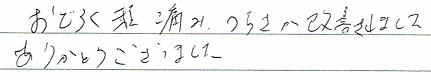 おどろく程 痛み、つらさが改善されました
ありがとうございました